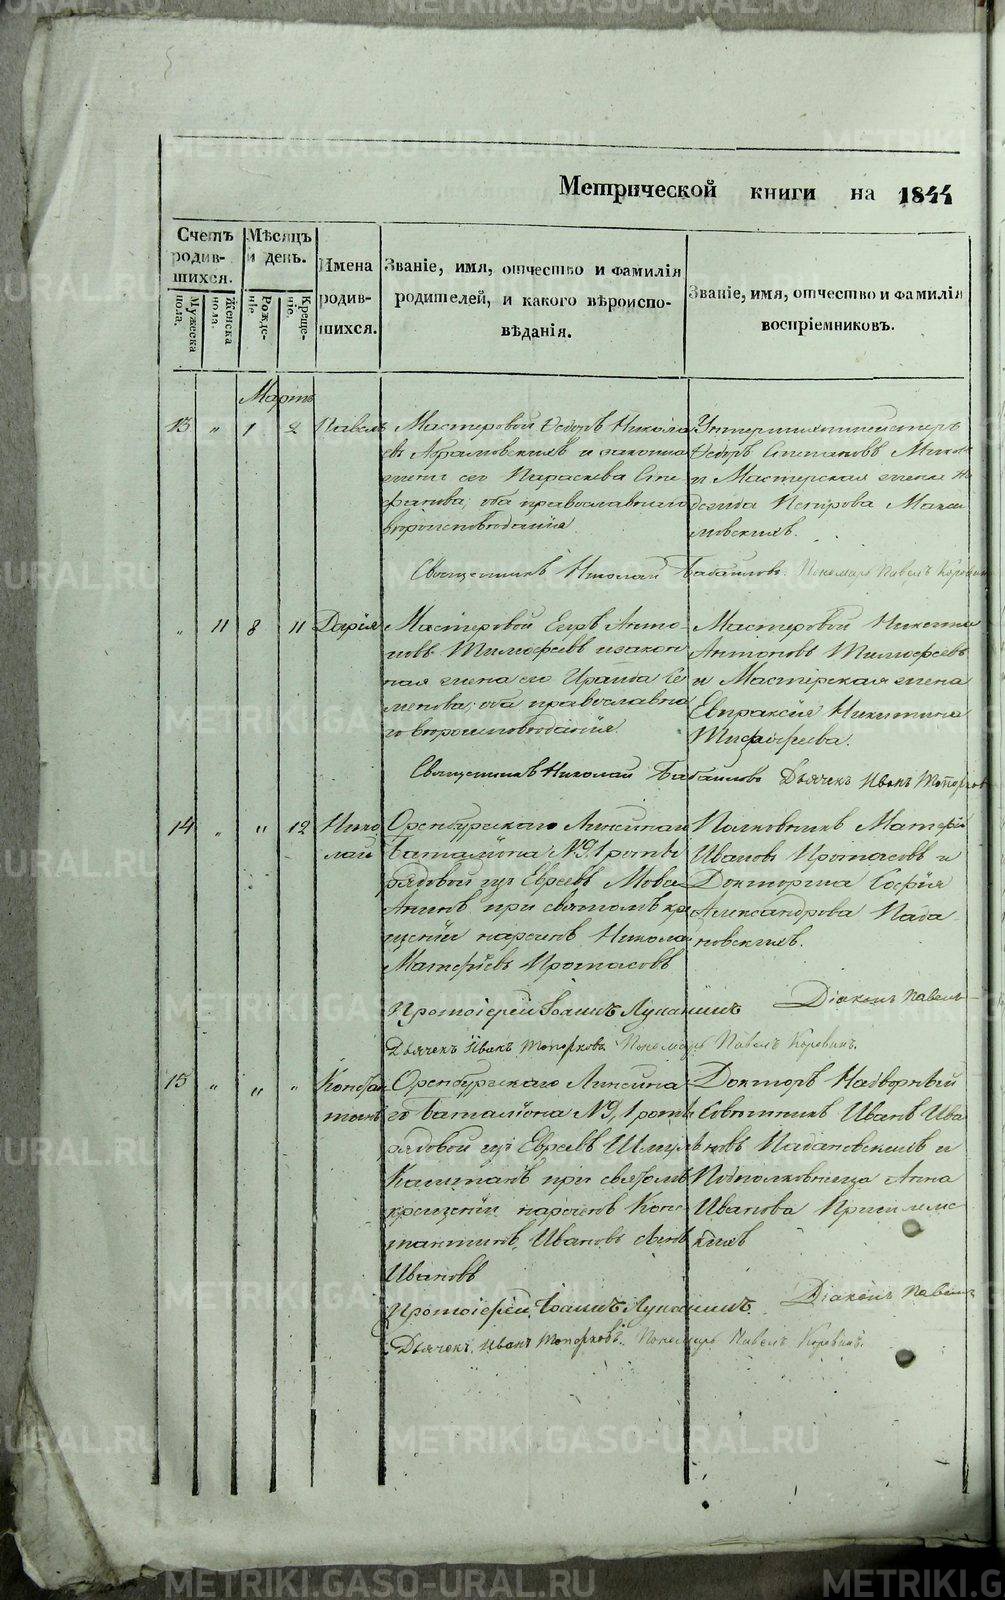 Метрической книги на 1844
Счетъ родив-шихся.
Мужеска пола.
Женска пола.
Мѣсяцъ и день.
Рожде-ніе.
Креще-ніе.
Имена родив-шихся.
Званіе, имя, отчество и фамилія
родителей, и какого вѣроиспо-
вѣданія.
Званіе, имя, отчество и фамилія
воспріемниковъ.
Мартъ
13 " 1 2 Павелъ
Мастеровой Ѳедоръ Никола
евъ Абрамовскихъ и законна
жена его Параскева Сте
фанова, оба православнаго
вѣроисповѣданія
Унтершихтмейстеръ
Ѳедоръ Степановъ
и Мастерская жена На
дежда Петрова Макси
мовскихъ.
Священникъ Николай Пономарь Павелъ Коровинъ
" 11 8 11 Дарія
Мастеровой Егоръ Анто-
новъ Тимофеевъ и закон
ная жена его Ираида Се
менова, оба православна
го вѣроисповѣданія.
Мастеровой Никита
Антоновъ Тимофеевъ
и Мастерская жена
Евпраксія Никитина
Тимофеева.
Священникъ Николай Дьячекъ Иванъ Топорков
14 " " 12 Нико
лай
Оренбургскаго Линейнаго
баталіона №. 1 роты
рядовой изъ Евреевъ
при святомъ кре
щеніи нареченъ Никола
Матфѣевъ Протасовъ
Полковникъ Матфѣй
Ивановъ Протасовъ и
Докторша Софія
Александрова Пада
новскихъ.
Протоіерей Іоаннъ Луканинъ Діаконъ Павелъ
Дьячекъ Иванъ Топорковъ Пономарь Павелъ Коровинъ.
15 " " " Констан
тинъ
Оренбургскаго Линейна
го баталіона №. 1 роты
рядовой изъ Евреевъ
при святомъ
крещеніи нареченъ Конс
тантинъ Ивановъ
Ивановъ
Докторъ Надворный
Совѣтникъ Иванъ Ива
новъ Падановскихъ и
Подполковница Анна
Иванова
Протоіерей Іоаннъ Луканинъ. Діаконъ Павелъ
Дьячекъ Иванъ Топорковъ. Пономарь Павелъ Коровинъ.
METRIKI.GASO-URAL.RU